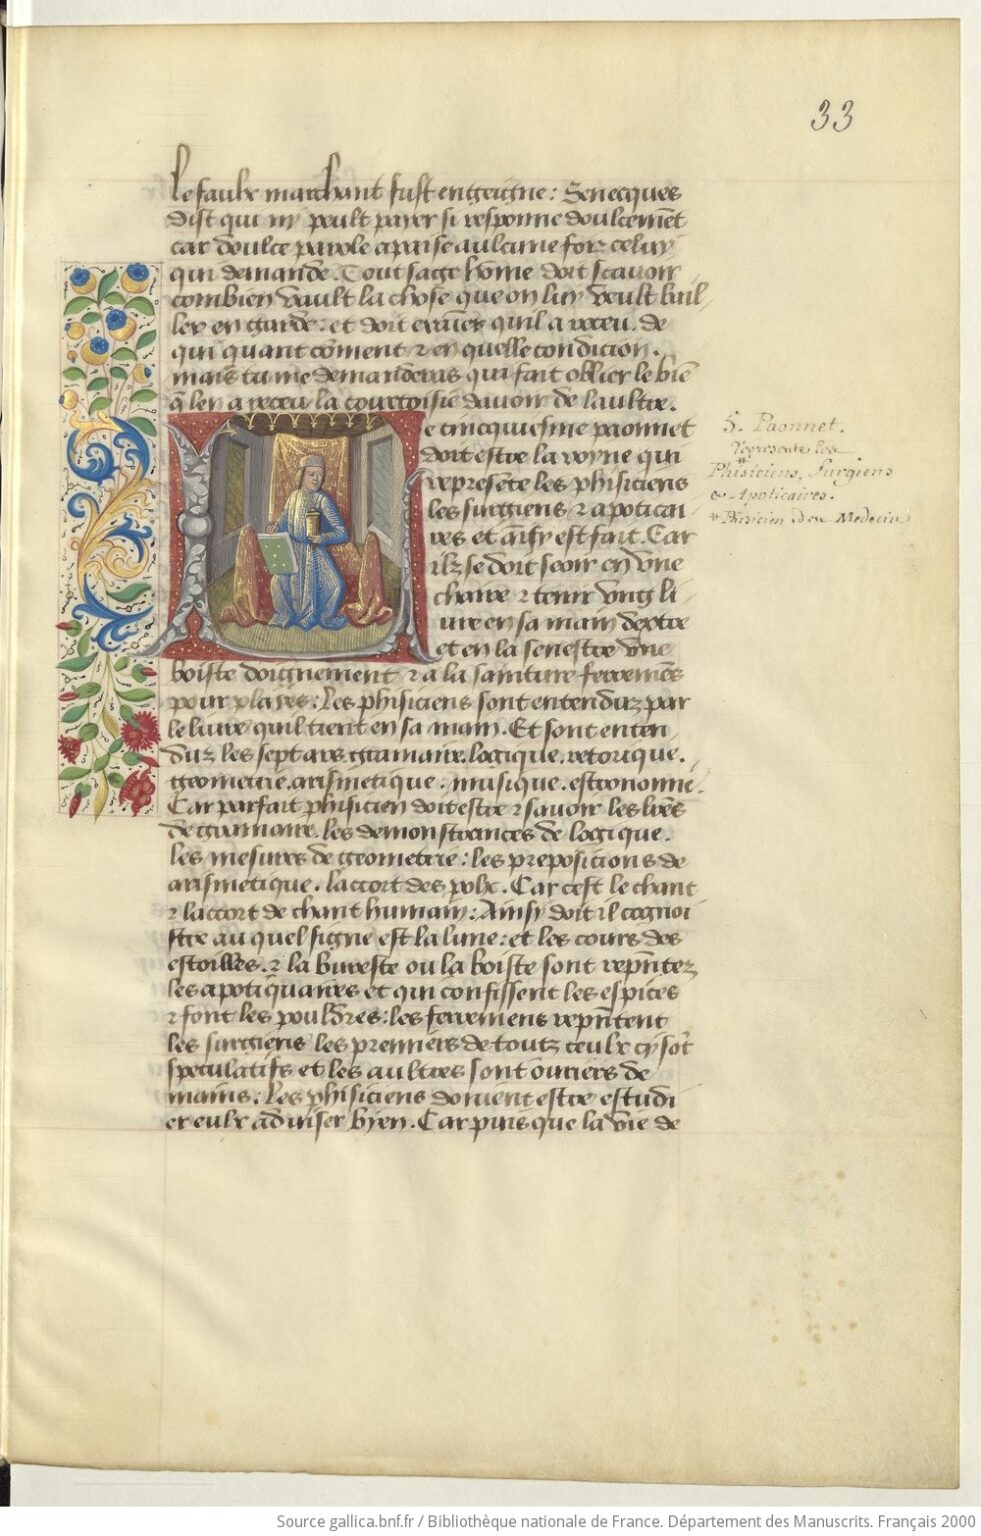 33
le faulx marchant fust engeigne: Senecques
dist qui ny peult payer si responne doulcemēt
car doulce parole apaise aulcune foiz celuy
qui demande. Tout sage hōme doit scauoir
combien vault la chose que on luy veult bail
ler en garde: et doit qūil a receu. de
qui quant cōment ⁊ en quelle condicion.
mais tu me demanderas qui fait oblier le biē
q̄ len a receu la courtoisie dauoir de laultre.
e cincquiesme paonnet
doit estre la royne qui
represēte les phisiciens
les surgiens ⁊ apoticai
res et aīsy est fait. Car
ilz se doit seoir en vne
chaire ⁊ tenir vng li
ure en sa main dextre
et en la senestre vne
boiste doignement ⁊ a la sainture ferremēs
pour playes: Les phisiciens sont entenduz par
le liure quil tient en sa main. Et sont enten
duz les sept ars. gramaire. logique. retorique.
geometrie. arismetique. musique. estronomie.
Car parfait phisicien doit estre ⁊ sauoir les lrēs
de gramaire. les demonstrances de logique.
les mesures de geometrie: les preposicions de
arismetique. laccort des polx. Car cest le chant
⁊ laccort de chant humain: Ainsy doit il cognoi
stre au quel signe est la lune: et les cours des
estoilles. ⁊ la bureste ou la boiste sont repn̄tez
les apotiquaires et qui confissent les espices
⁊ font les pouldres: les ferremens repn̄tent
les surgiens les premiers de toutz ceulx cy sōt
speculatifs et les aultres sont ouuriers de
mains. Les phisiciens doiuent estre estudi
er eulx aduiser byen. Car puis que la vie de
5. Paonnet.
Represente les
Phisiciens, Surgiens
& Apoticaires.
* Phisicien id est Medecin
Source gallica.bnf.fr / Bibliothèque nationale de France. Département des Manuscrits. Français 2000